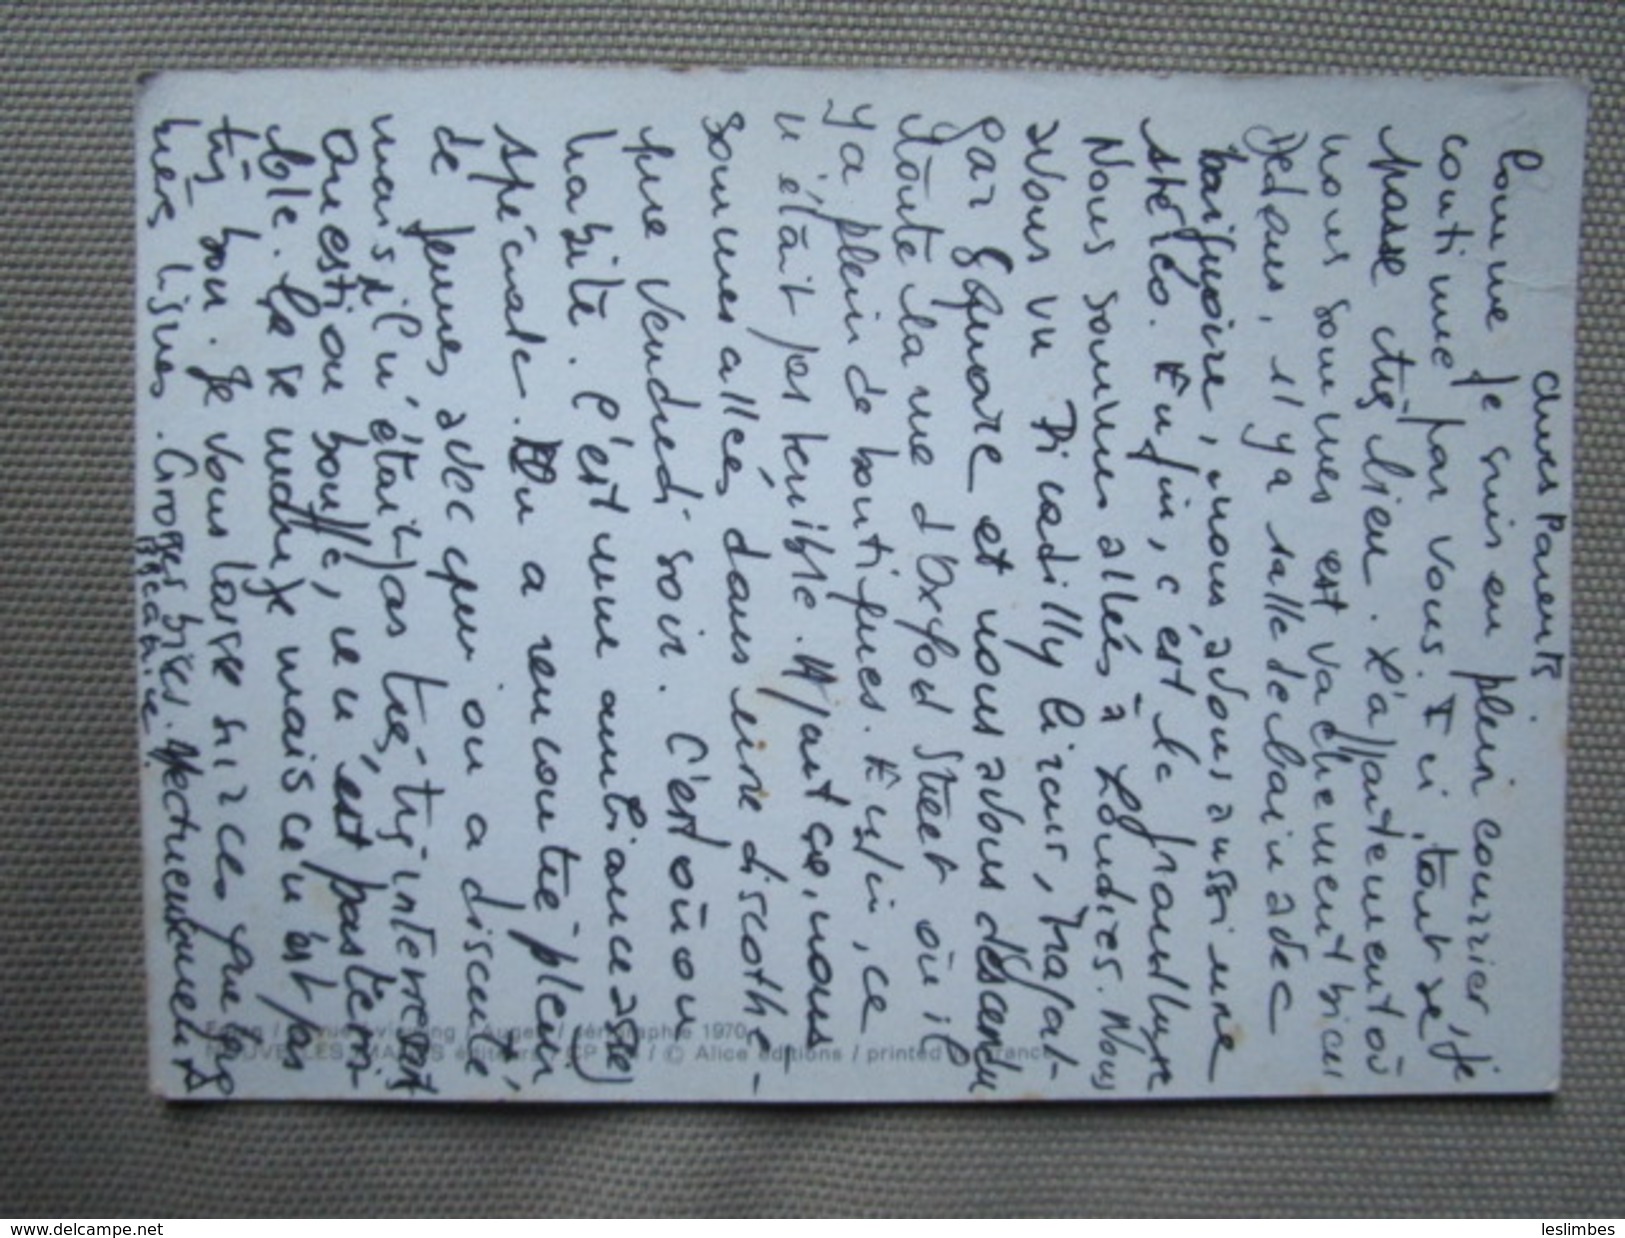 Chers Parents.
Comme je suis en plein courrier, je
continue par vous. Ici, tout se
passe très bien. L'appartement où
nous sommes est vachement bien
dedans, il y a salle de bain avec
baignoire, nous avons aussi une
stéréo. Enfin, c'est le grand luxe
Nous sommes allés à Londres. Nous
avons vu Picadilly Circus, Trafal-
gar Square et nous avons descendu
toute la rue d'Oxford Street où il
y a plein de boutiques. Enfin, ce
n'était pas terrible. A part ça, nous
sommes allés dans une discothè-
que Vendredi soir. C'est où on
habite. C'est une ambiance assez
spéciale. On a rencontré plein
de jeunes avec qui on a discuté,
mais il n'était pas très très intéressant
Question bouffe, ce n'est pas terri-
ble. Ça se mange mais ce n'est pas
très bon. Je vous laisse sur ces quelques
lignes. Grosses bises. Affectueusement
Béatrice
1970
NOUVELLES IMAGES éditeurs / © Alice éditions / printed in France
www.delcampe.net
leslimbes